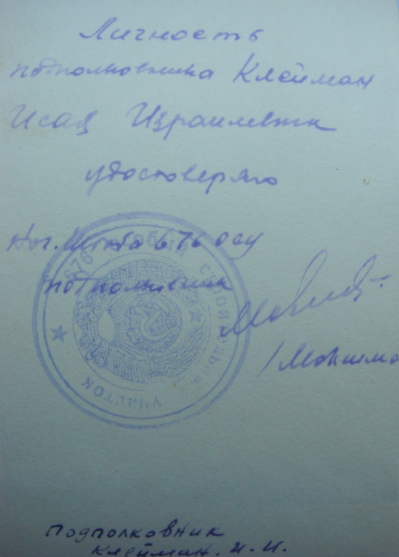 Личность
подполковника Клейман
Исая Израилевича
удостоверяю
Нач. Штаба 676 осу
подполковник
/Максимо
676 ОСОБЫЙ СТРОИТЕЛЬ
УЧАСТОК
Подполковник
Клейман. И. И.